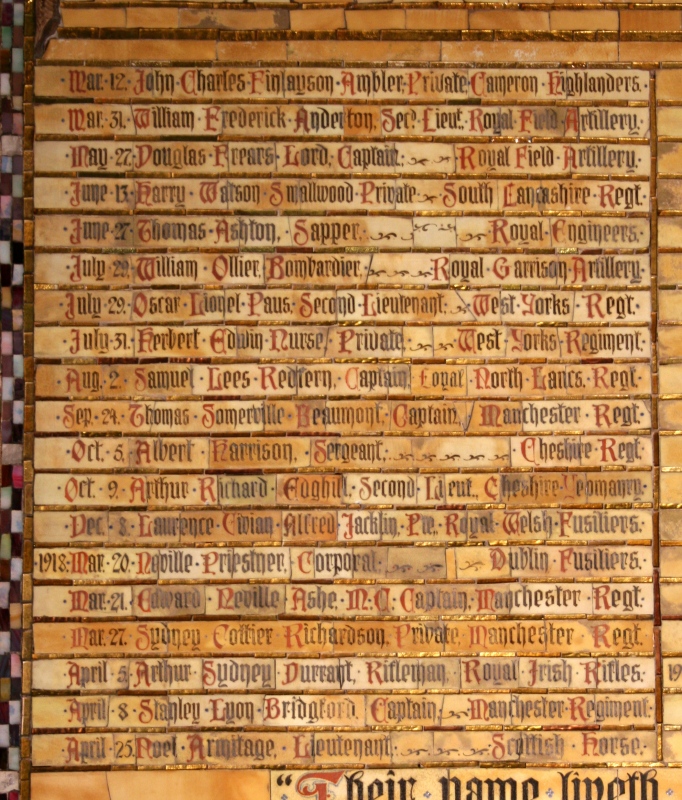 Mar·12·John·Charles·Finlayson·Ambler·Private·Cameron·Highlanders.
Mar·31·William·Frederick·Anderton, Secd. Lieut. Royal·Field·Artillery.
May·27·Douglas·Frears·Lord, Captain, Royal Field·Artillery.
June·13·Harry·Watson·Smallwood·Private South·Lancashire·Regt.
June·27·Thomas·Ashton, Sapper. Royal·Engineers.
July·28·William·Ollier, Bombardier, Royal·Garrison·Artillery.
July·29·Oscar·Lionel·Paus, Second·Lieutenant, West·Yorks Regt.
July·31·Herbert·Edwin·Nurse, Private, West·Yorks·Regiment.
Aug·2·Samuel·Lees·Redfern, Captain, Loyal·North·Lancs. Regt.
Sep·24·Thomas·Somerville·Beaumont, Captain, Manchester·Regt.
Oct. 5, Albert·Harrison, Sergeant, Cheshire·Regt.
Oct. 9·Arthur·Richard·Edghill, Second·Lieut., Cheshire·Yeomanry.
Dec. 8·Laurence·Vivian·Alfred·Jacklin, Pte. Royal·Welsh·Fusiliers.
1918·Mar·20·Neville·Priestner, Corporal Dublin·Fusiliers.
Mar·21·Edward·Neville·Ashe, M.C. Captain, Manchester·Regt.
Mar. 27. Sydney·Collier·Richardson, Private, Manchester·Regt.
April·5·Arthur·Sydney·Durrant, Rifleman, Royal·Irish·Rifles.
April·8·Stanley·Lyon·Bridgford, Captain, Manchester·Regiment.
April·25·Noel·Armitage, Lieutenant, Scottish·Horse.
"Their·name·liveth